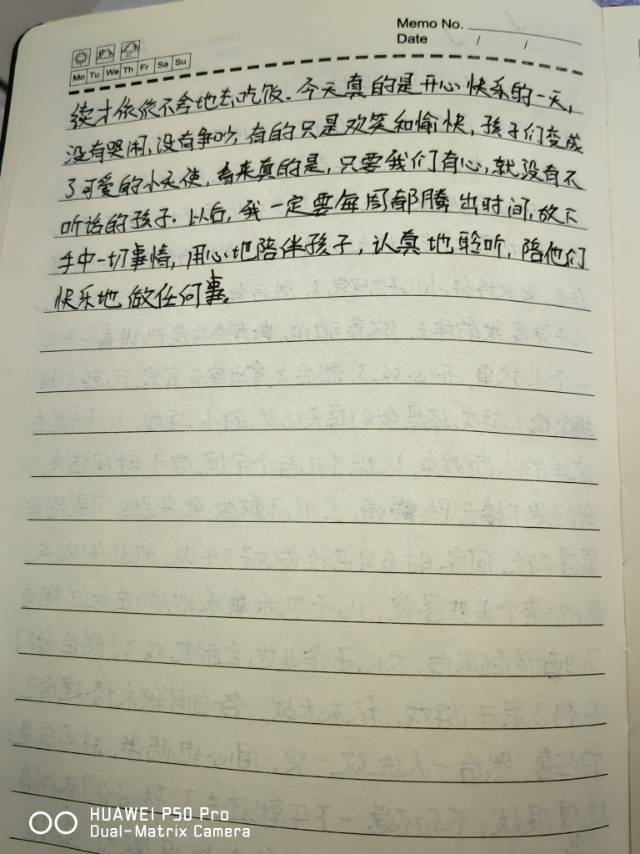 Memo No.
Date / /
Mo Tu We Th Fr Sa Su
续才依依不舍地去吃饭。今天真的是开心快乐的一天,
没有哭闹,没有争吵,有的只是欢笑和愉快,孩子们变成
了可爱的小天使,看来真的是,只要我们有心,就没有不
听话的孩子。以后,我一定要每周都腾出时间,放下
手中一切事情,用心地陪伴孩子,认真地聆听,陪他们
快乐地做任何事。
HUAWEI P50 Pro
Dual-Matrix Camera